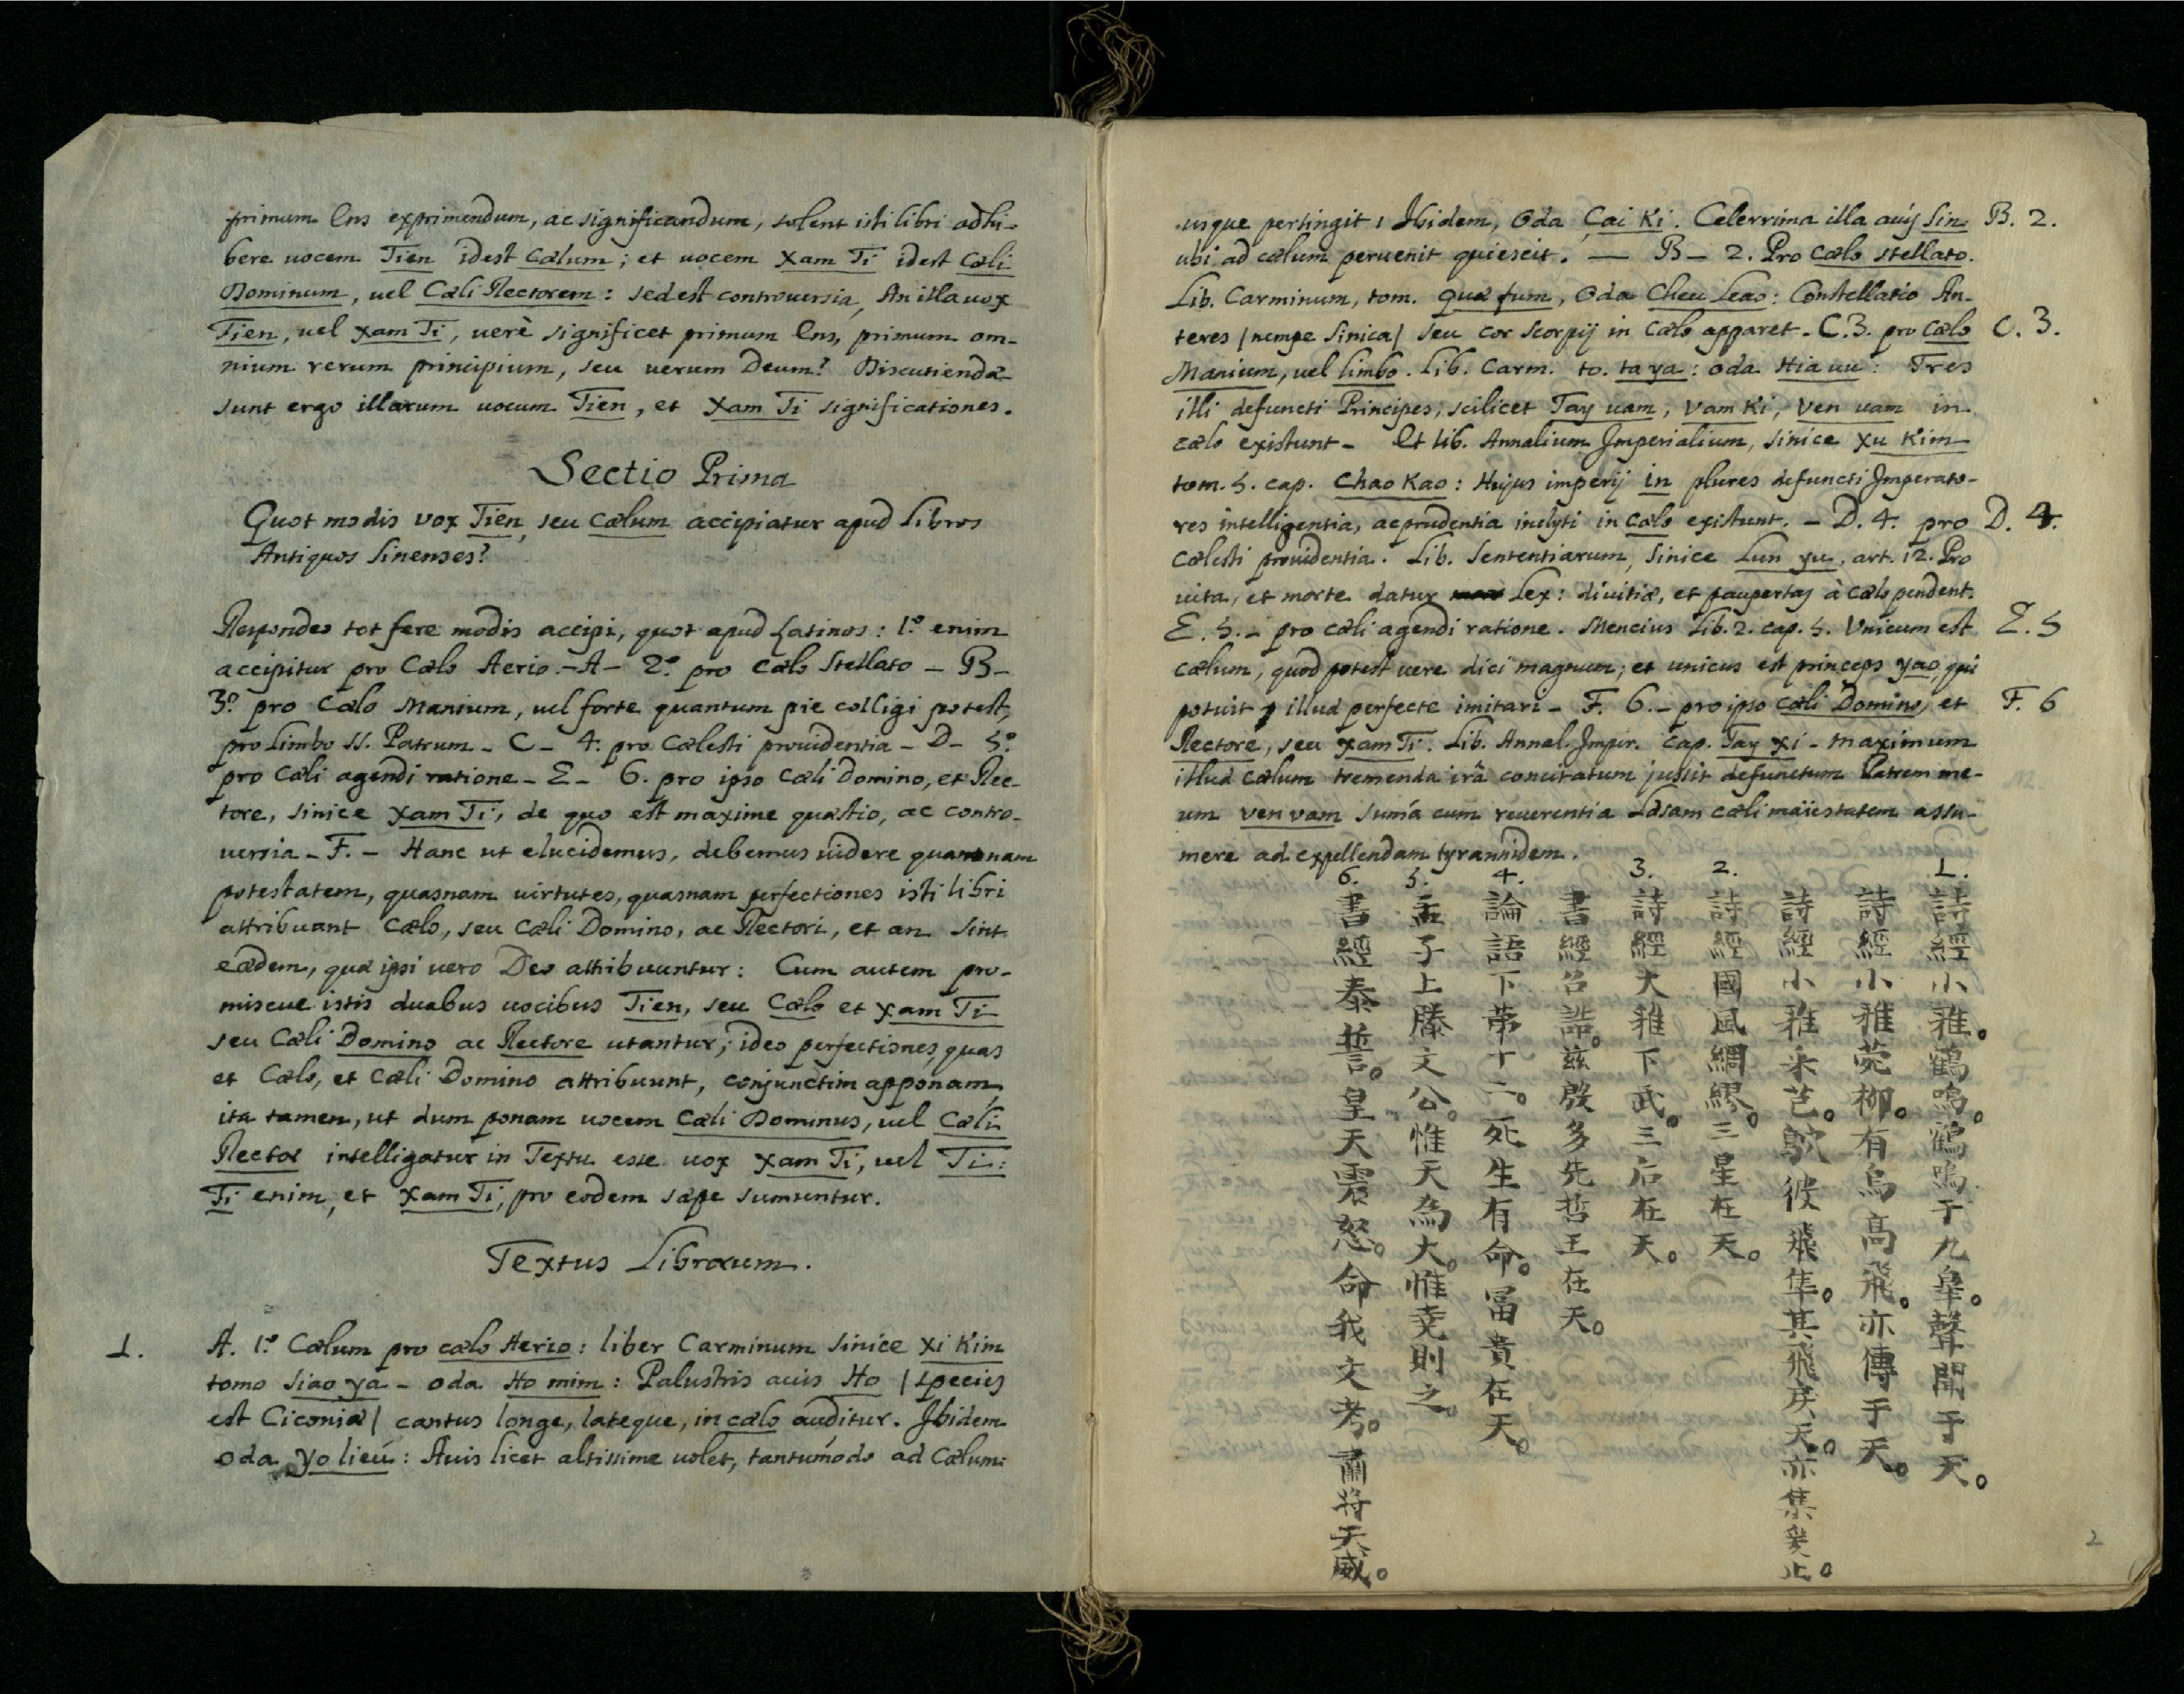 primum Ens exprimendum, ac significandum, solent isti libri adhi-
bere uocem Tien idest Cælum; et uocem Xam Ti idest Cæli
Dominum, uel Cæli Rectorem: sed est controuersia, An illa uox
Tien, uel Xam Ti, uerè significet primum Ens, primum om-
nium rerum principium, seu uerum Deum? Discutiendæ
sunt ergo illarum uocum Tien, et Xam Ti significationes.
Sectio Prima
Quot modis vox Tien, seu Cælum accipiatur apud Libros
Antiquos Sinenses?
Respondeo tot fere modis accipi, quot apud Latinos: 1.º enim
accipitur pro Cælo Aerio.-A- 2.º pro Cælo Stellato - B-
3.º pro Cælo Manium, uel forte quantum pie colligi potest,
pro Limbo SS. Patrum - C - 4. pro Cælesti prouidentia - D- 5.º
pro Cæli agendi ratione - E - 6. pro ipso Cæli Domino, et Rec-
tore, sinice Xam Ti, de quo est maxime quæstio, ac contro-
uersia - F. - Hanc ut elucidemus, debemus uidere quamnam
potestatem, quasnam uirtutes, quasnam perfectiones isti libri
attribuant Cælo, seu Cæli Domino, ac Rectori, et an sint
eædem, quæ ipsi uero Deo attribuuntur: Cum autem pro-
miscue istis duabus uocibus Tien, seu Cælo et Xam Ti
seu Cæli Domino ac Rectore utantur; ideo perfectiones, quas
et Cælo, et Cæli Domino attribuunt, conjunctim apponam,
ita tamen, ut dum ponam uocem Cæli Dominus, uel Cæli
Rector intelligatur in Textu esse uox Xam Ti, uel Ti:
Ti enim, et Xam Ti, pro eodem sæpe sumuntur.
Textus Librorum.
1. A. 1.º Cælum pro cælo Aerio: liber Carminum sinice Xi Kim
tomo Siao ya - oda Ho mim: Palustris auis Ho / species
est Ciconiæ / cantus longe, lateque, in cælo auditur. Ibidem
oda yo lieú: Auis licet altissime uolet, tantumodo ad Cælum
usque pertingit; Ibidem, Oda Cai Ki. Celerrima illa auis Sin B. 2.
ubi ad cælum peruenit quiescit. — B - 2. Pro Cælo stellato.
Lib. Carminum, tom. Quæ fum, Oda Cheu Leao: Constellatio An-
teres / nempe Sinica / seu cor Scorpij in Cælo apparet - C.3. pro Cælo C. 3.
Manium, uel limbo. Lib. Carm. to. ta ya: oda Hia uu: Tres
illi defuncti Principes, scilicet Tay uam, Vam Ki, Ven uam in
cælo existunt - Et lib. Annalium Imperialium, sinice Xu Kim
tom. 5. cap. Chao Kao: Hujus imperij in plures defuncti Imperato-
res intelligentia, ac prudentia inclyti in Cælo existunt. - D. 4. pro D. 4.
Cælesti prouidentia. Lib. Sententiarum, Sinice Lun yu, art. 12. Pro
uita, et morte datur Lex: diuitiæ, et paupertas à Cælo pendent.
E. 5. - pro cæli agendi ratione. Mencius Lib. 2. cap. 5. Vnicum est E. 5
cælum, quod potest uere dici magnum; et unicus est princeps yao, qui
potuit illud perfecte imitari - F. 6. - pro ipso Cæli Domino, et F. 6
Rectore, seu Xam Ti. Lib. Annal. Imper. cap. Tay Xi - Maximum
illud Cælum tremenda irâ concitatum jussit defunctum Patrem me-
um Ven vam suma cum reuerentia Læsam cæli maiestatem assu-
mere ad expellendam tyrannidem.
1. 詩經小雅。鶴鳴。鶴鳴于九臯。聲聞于天。
詩經小雅菀柳。有鳥高飛。亦傳于天。
詩經小雅采芑。鴥彼飛隼。其飛戾天。亦集爰止。
2. 詩經國風綢繆。三星在天。
3. 詩經大雅下武。三后在天。
書經召誥。兹殷多先哲王在天。
4. 論語下第十二。死生有命。冨貴在天。
5. 孟子上滕文公。惟天為大。惟堯則之。
6. 書經泰誓。皇天震怒。命我文考。肅将天威。
2